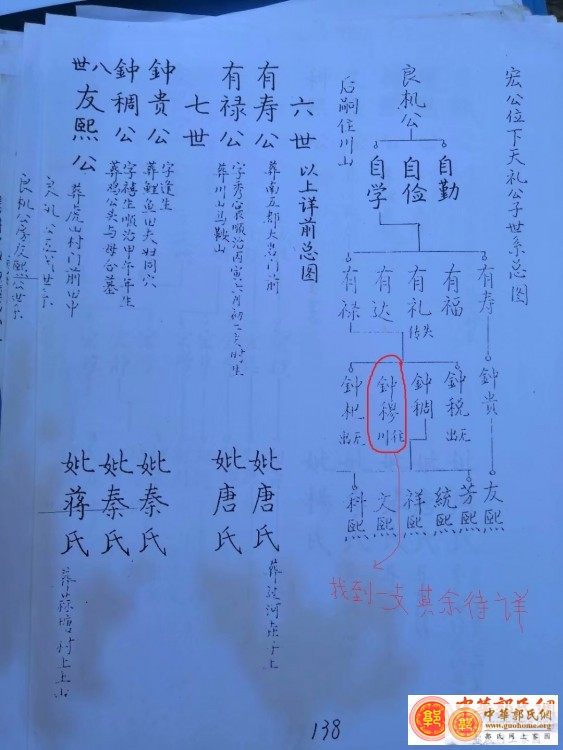 宏公位下天礼公子世系总图
良机公
后嗣住川山
自勤
自俭
自学
有寿
有福
有礼
失传
有达
有禄
鈡貴
鈡税
无出
鈡稠
鈡穆
住川
鈡杷
无出
友熙
芳熙
統熙
祥熙
文熙
科熙
六世 以上详前总图
有寿公
葬南五都大岩门前
妣唐氏
有禄公
字秀宸順治丙寅六月初二亥时生
葬川山马鞍山
妣唐氏
七世
鈡貴公
字逢生
葬鯉魚田夫妇同穴
妣秦氏
鈡稠公
字禧生順治甲午年生
葬鸡公头与母合墓
妣秦氏
八世
友熙公
葬虎山村门前田中
妣蒋氏
葬蒜塘村上土山
良机公房友熙公世系
找到一支其余待详
138
中華郭氏網
www.guohome.org
郭氏网上家园